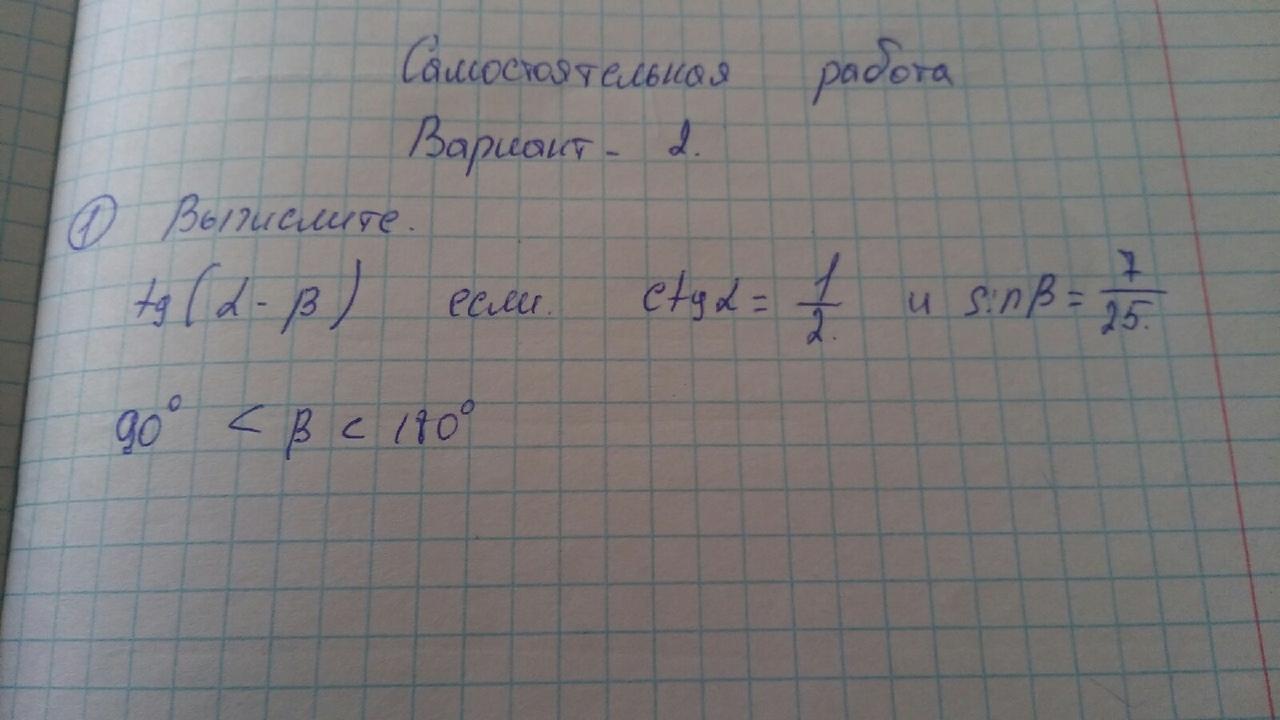 Самостоятельная работа
Вариант - 2.
① Вычислите.
tg(α - β) если. ctgα = 1/2. и sinβ = 7/25.
90° < β < 180°